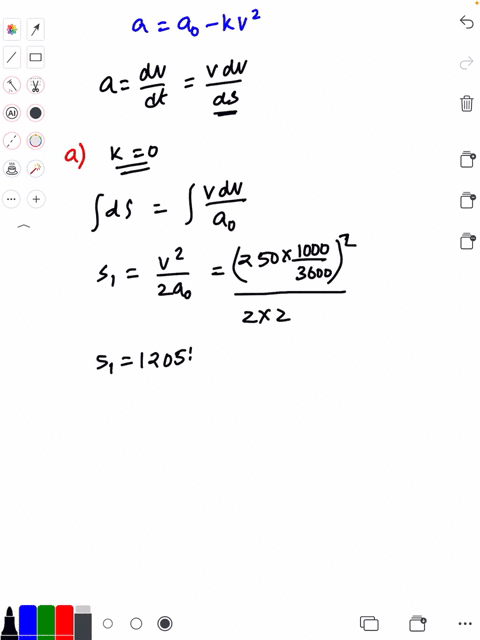 a = a₀ - kv²
a = dv/dt = vdv/ds
a) k = 0
∫ds = ∫ vdv/a₀
s₁ = v²/2a₀ = (250 × 1000/3600)²/2×2
s₁ = 1205